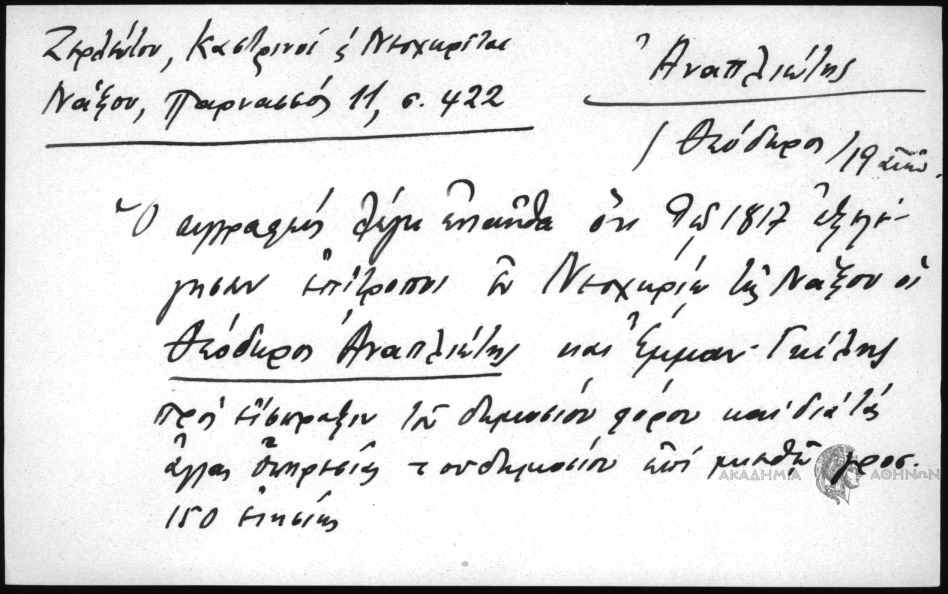 Ζερλέντου, Καστρινοί & Νεοχωρίται
Νάξου, Παρνασσός 11, σ. 422
Ἀναπλιώτης
/ Θεόδωρος / 19 αἰών.
Ὁ συγγραφεὺς λέγει ἐνταῦθα ὅτι τῷ 1817 ἐξελέ-
γησαν ἐπίτροποι τῶν Νεοχωριτῶν τῆς Νάξου οἱ
Θεόδωρος Ἀναπλιώτης καὶ Ἐμμαν. Γκίλης
πρὸς εἴσπραξιν τοῦ δημοσίου φόρου καὶ διὰ τὰς
ἄλλας ὑπηρεσίας τοῦ δημοσίου ἐπὶ μισθῷ γροσ.
150 ἐτησίως
ΑΚΑΔΗΜΙΑ ΑΘΗΝΩΝ